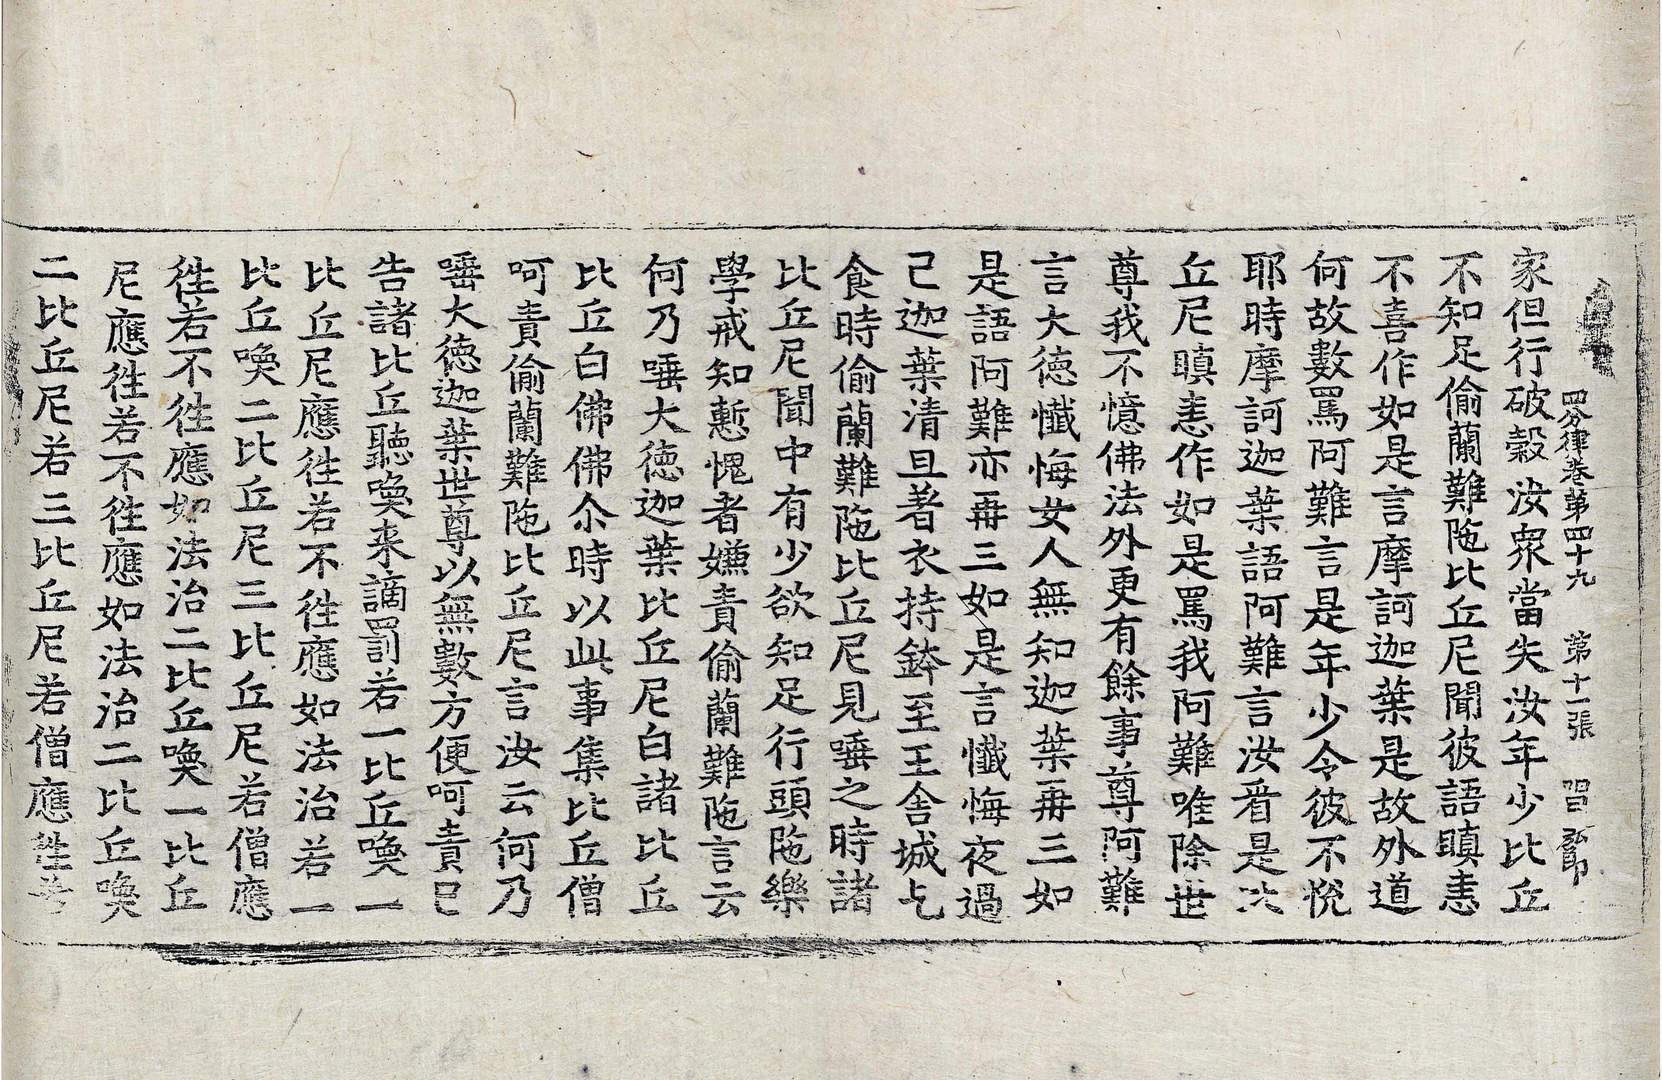 四分律卷第四十九 第十一張
家但行破穀汝衆當失汝年少比丘
不知足偷蘭難陁比丘尼聞彼語瞋恚
不喜作如是言摩訶迦葉是故外道
何故數罵阿難言是年少令彼不悅
耶時摩訶迦葉語阿難言汝看是比
丘尼瞋恚作如是罵我阿難唯除世
尊我不憶佛法外更有餘事尊阿難
言大德懺悔女人無知迦葉再三如
是語阿難亦再三如是言懺悔夜過
已迦葉清旦著衣持鉢至王舍城乞
食時偷蘭難陁比丘尼見唾之時諸
比丘尼聞中有少欲知足行頭陁樂
學戒知慙愧者嫌責偷蘭難陁言云
何乃唾大德迦葉比丘尼白諸比丘
比丘白佛佛尒時以此事集比丘僧
呵責偷蘭難陁比丘尼言汝云何乃
唾大德迦葉世尊以無數方便呵責已
告諸比丘聽喚来謫罰若一比丘喚一
比丘尼應徃若不徃應如法治若一
比丘喚二比丘尼三比丘尼若僧應
徃若不徃應如法治二比丘喚一比丘
尼應徃若不徃應如法治二比丘喚
二比丘尼若三比丘尼若僧應徃若